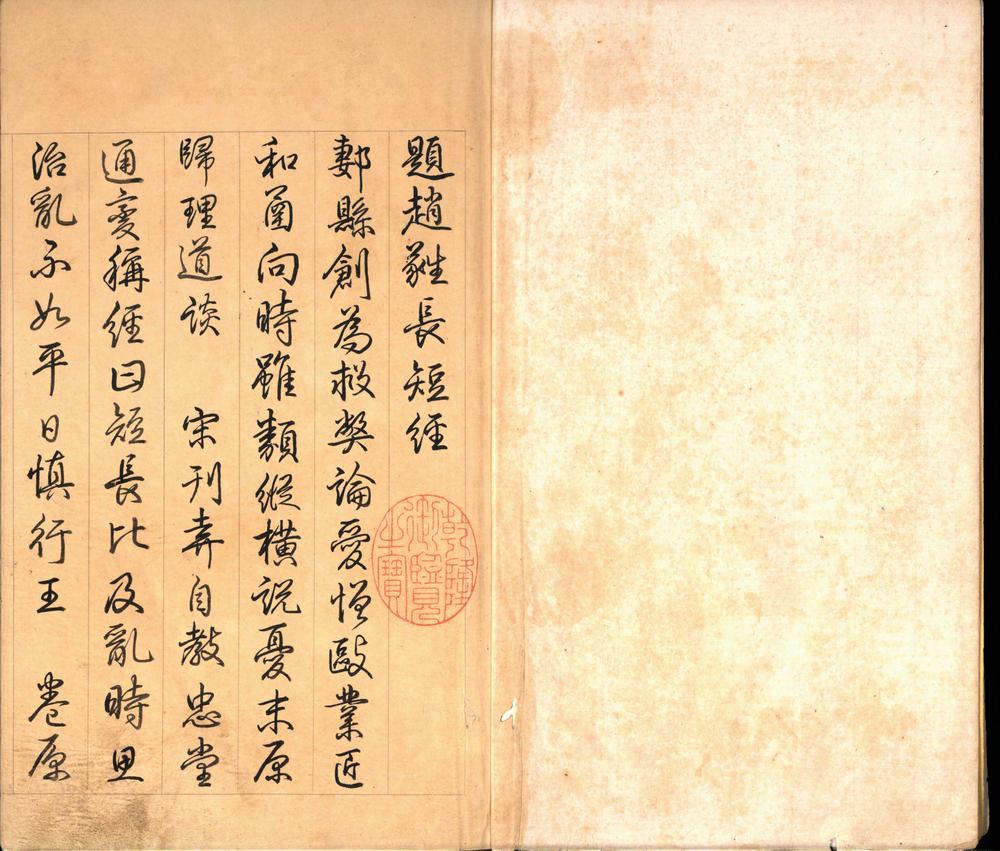 題趙蕤長短經
郪縣創為救獘論愛憎敺業匠
和圅向時雖類縱橫說憂末原
歸理道談　宋刊弆自教忠堂
通變稱經曰短長比及亂時思
治亂不如平日慎行王　卷原
乾隆御覽之寶